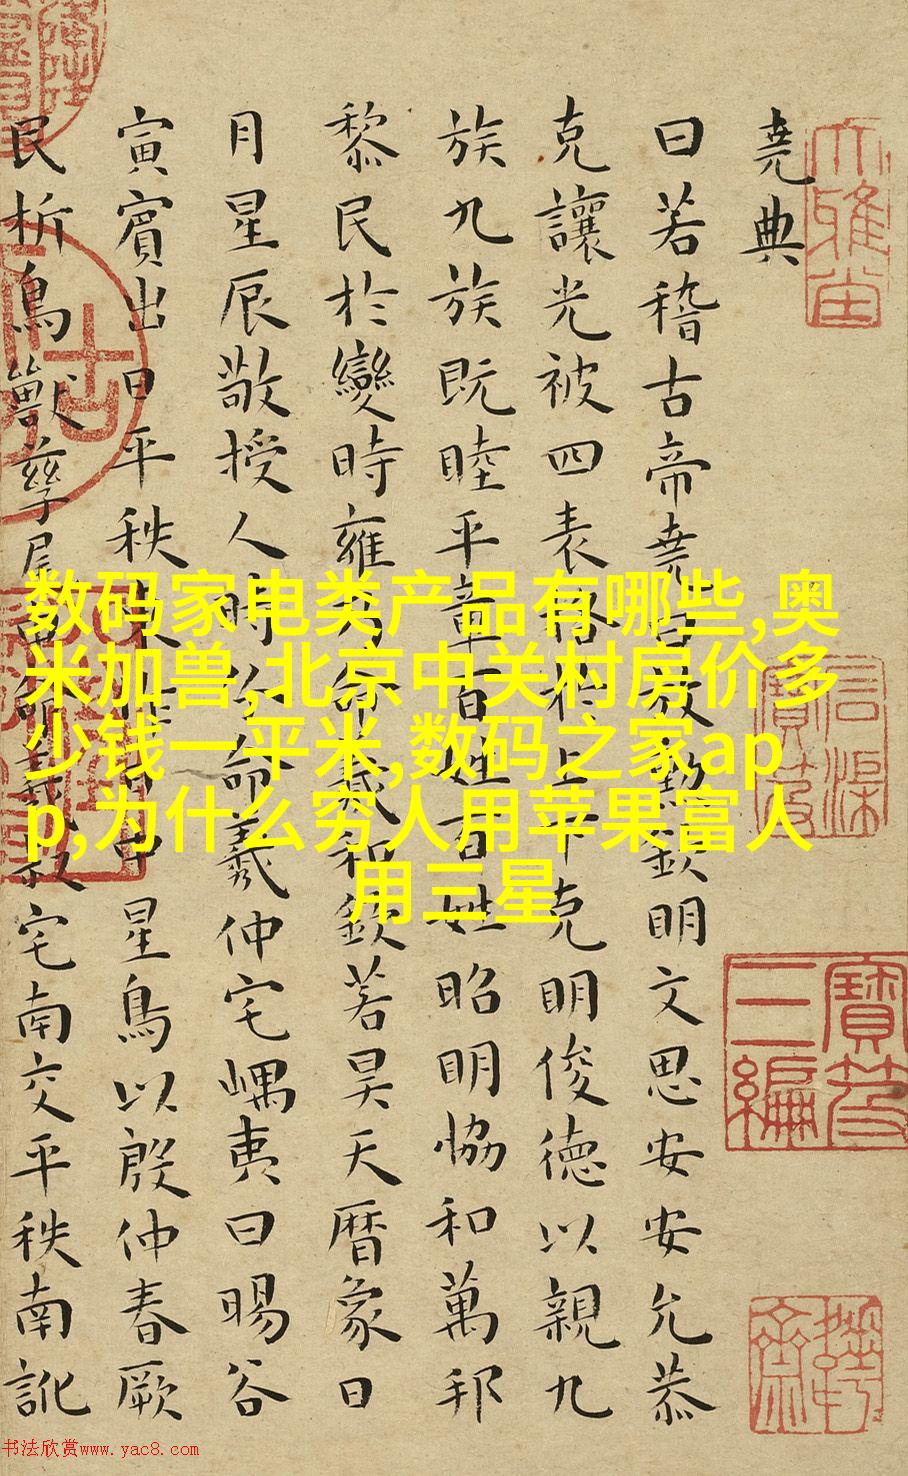 堯典
曰若稽古帝堯曰放勳欽明文思安安允恭
克讓光被四表格於上下克明俊德以親九
族九族既睦平章百姓百姓昭明恊和萬邦
黎民於變時雍乃命羲和欽若昊天曆象日
月星辰敬授人時分命羲仲宅嵎夷曰暘谷
寅賓出日平秩東作日中星鳥以殷仲春厥
民析鳥獸孳尾申命羲叔宅南交平秩南訛
数码家电类产品有哪些,奥
米加兽,北京中关村房价多
少钱一平米,数码之家ap
p,为什么穷人用苹果富人
用三星
寶笈
三編
书法欣赏www.yac8.com